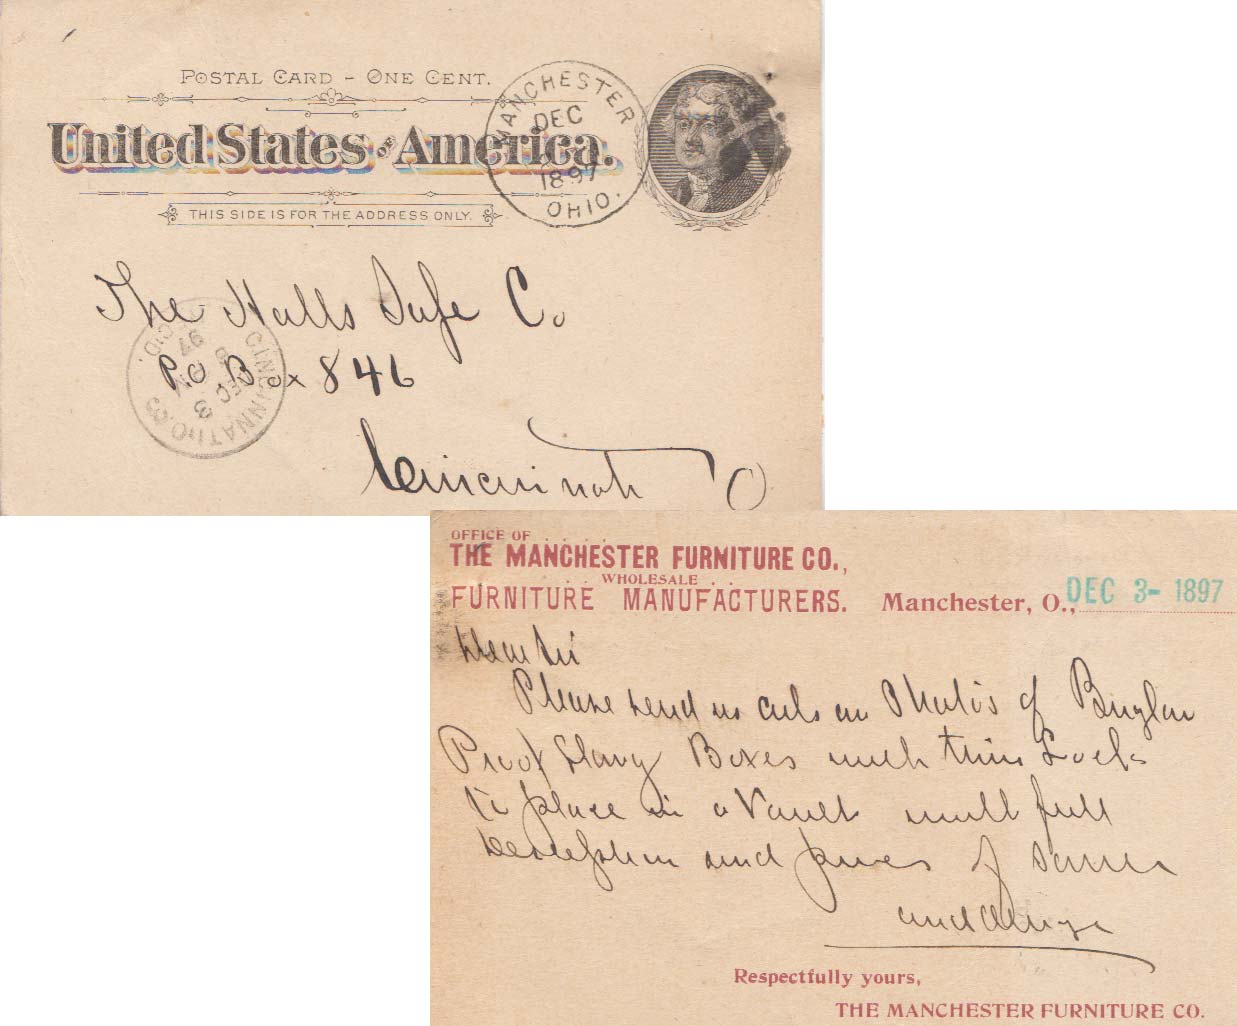 POSTAL CARD - ONE CENT.
United States of America.
THIS SIDE IS FOR THE ADDRESS ONLY.
MANCHESTER
DEC
1897
OHIO.
The Halls Safe Co
P.O Box 846
Cincinnati O
CINCINNATI, O.
DEC 3
97
REC'D.
OFFICE OF . . . .
THE MANCHESTER FURNITURE CO.,
. . . WHOLESALE . .
FURNITURE MANUFACTURERS. Manchester, O., DEC 3- 1897
Dear Sir
Please send us cuts or Photo's of Burglar
Proof Boxes with Time Lock
to place in a Vault with full
description and prices of same
and oblige
Respectfully yours,
THE MANCHESTER FURNITURE CO.